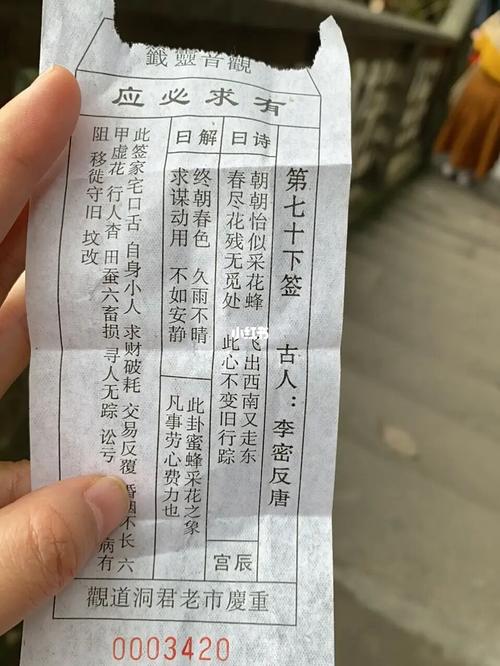 觀音靈籤
有求必应
第七十下签 古人：李密反唐
诗曰
朝朝怡似采花蜂 飞出西南又走东
春尽花残无觅处 此心不变旧行踪
辰宫
解曰
终朝春色 久雨不晴
求谋动用 不如安静
此卦蜜蜂采花之象
凡事劳心费力也
此签家宅口舌 自身小人 求财破耗 交易反覆 婚姻不长 六
甲虚花 行人杳 田蚕六畜损 寻人无踪 讼亏 病有
阻 移徙守旧 坟改
重慶市老君洞道觀
0003420
小红书